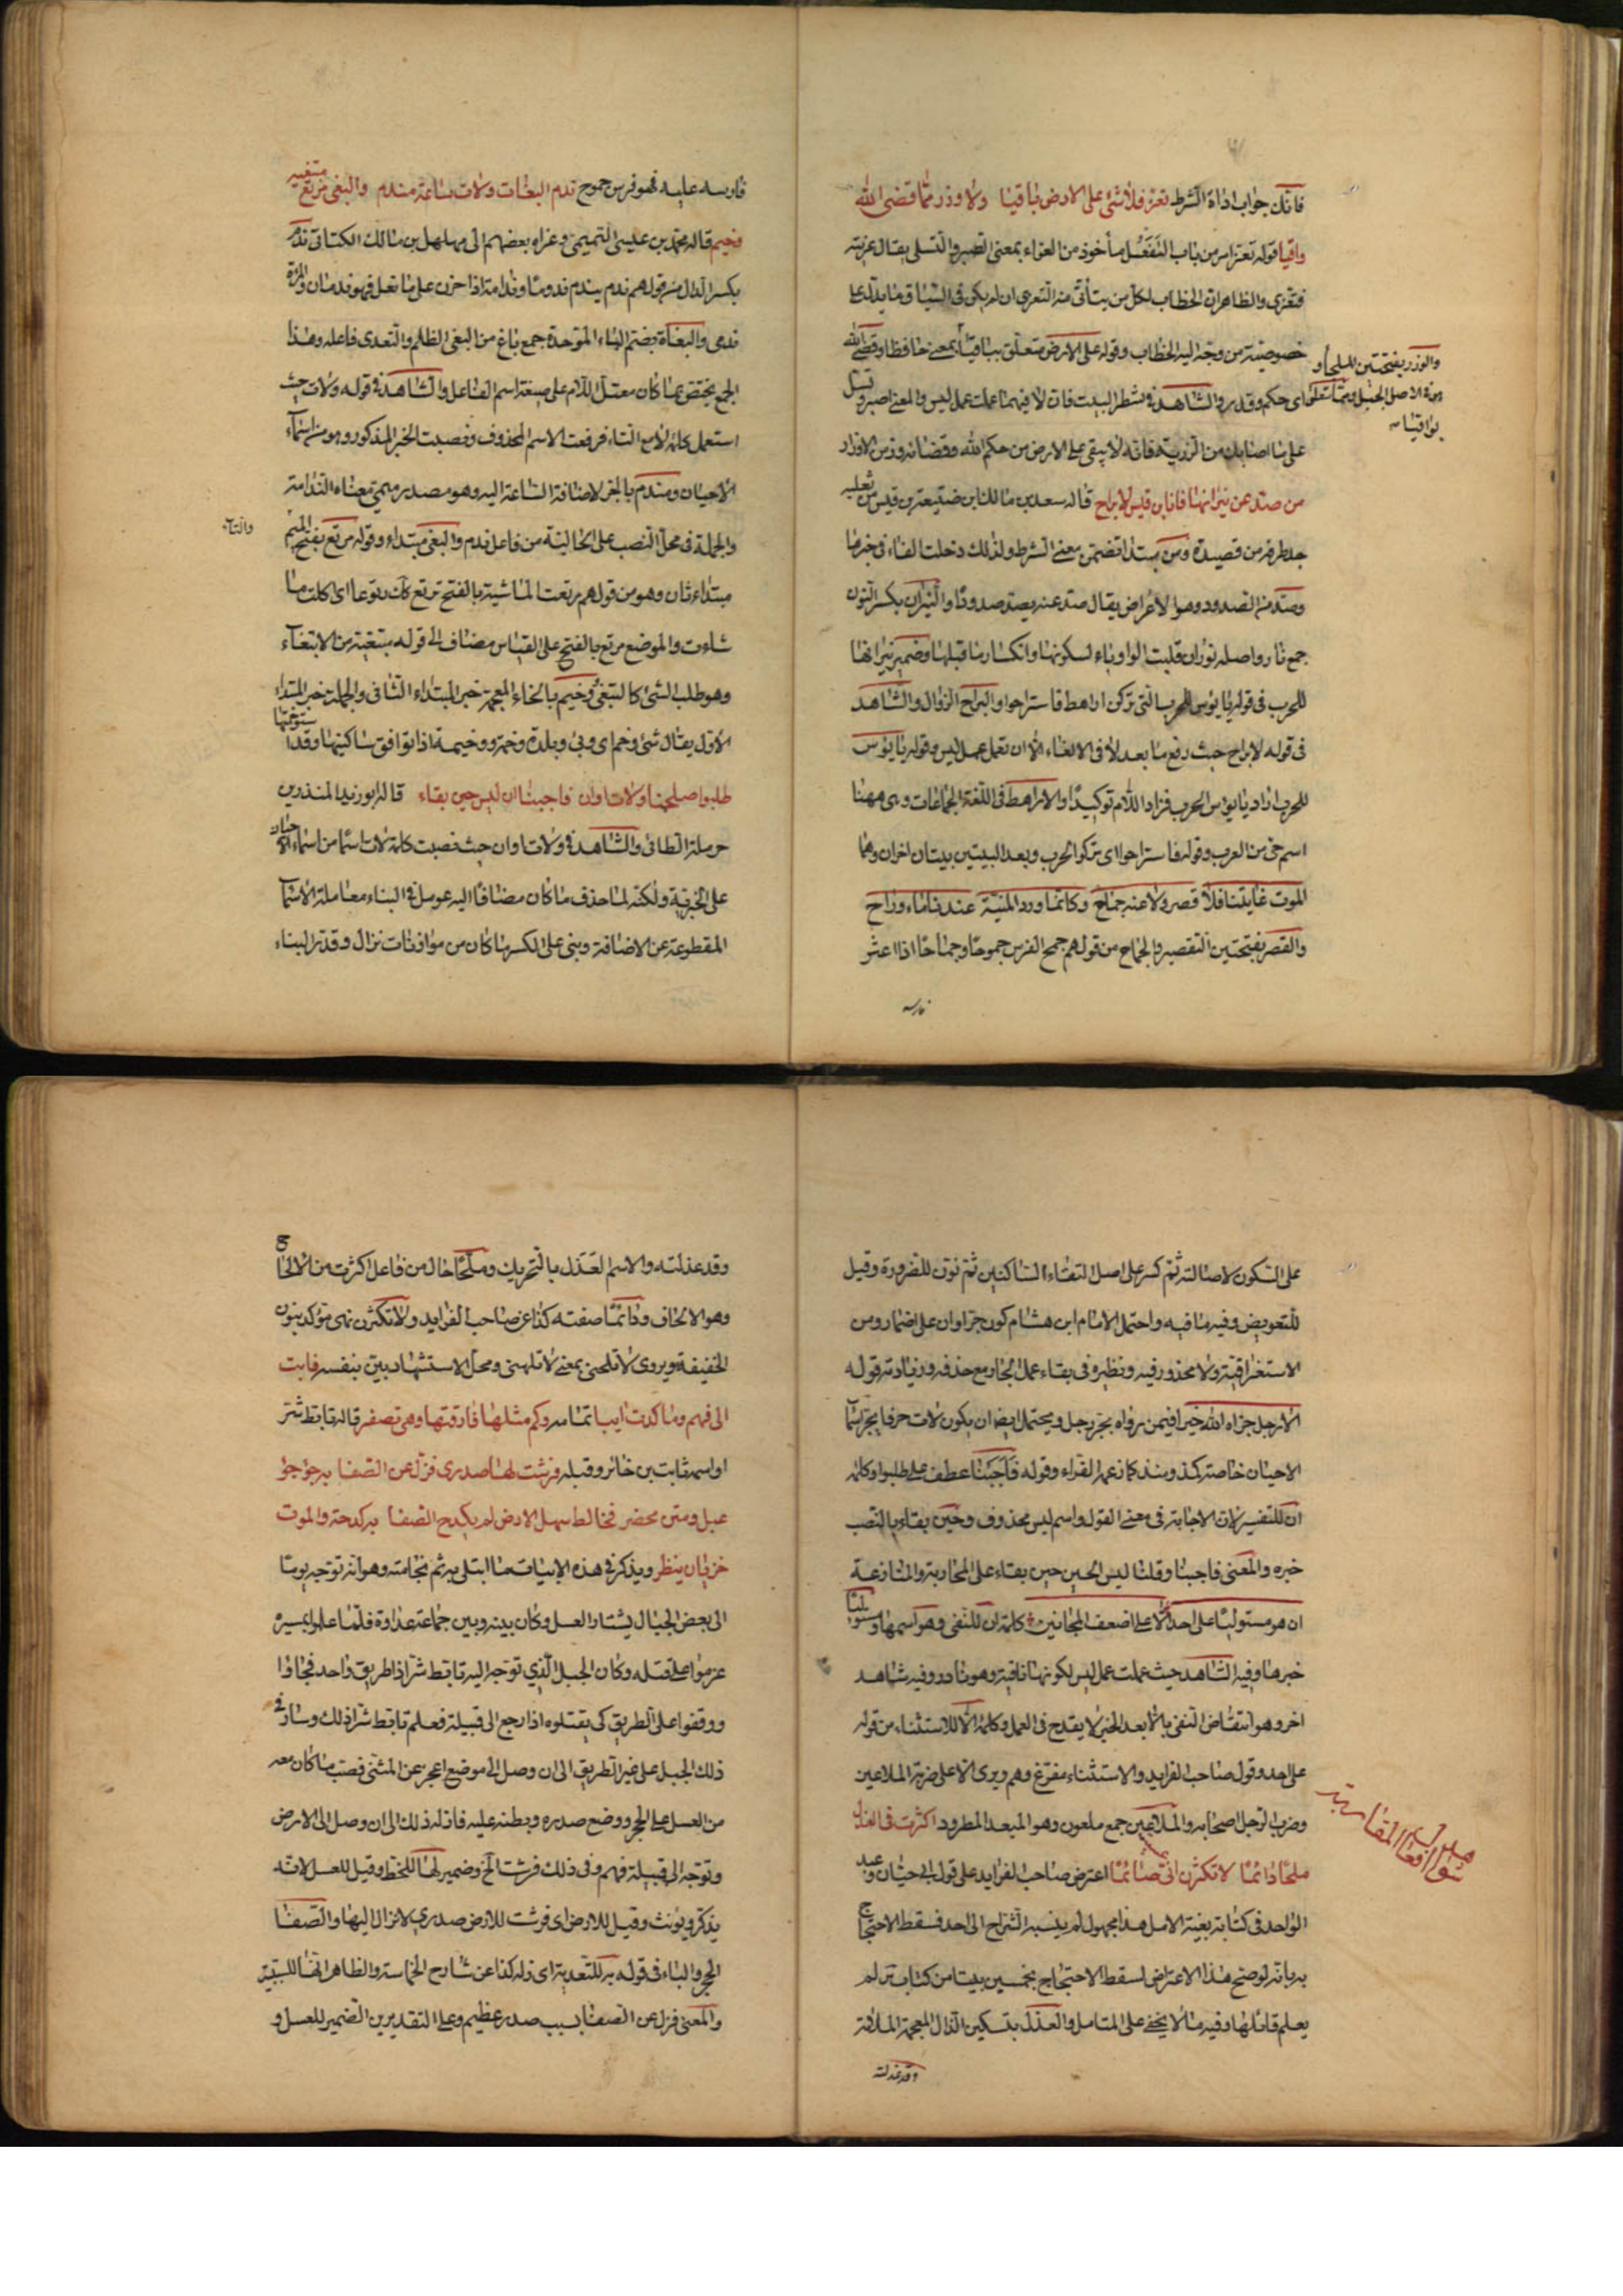 فانك جواب اداة الشرط تعز فلا شئ على الارض باقيا ولا وزر مما قضى الله
واقيا قوله تعز امر من باب التفعل مأخوذ من العزاء بمعنى الصبر والتسلى يقال عزيته
فتعزى والظاهر ان الخطاب لكل من يتأتى منه التعزى ان لم يكن فى السياق ما يدل على
خصوصية من وجه اليه الخطاب وقوله على الارض متعلق بباقيا بمعنى حافظا وقضى الله
اى حكم وقدر والشاهد فى شطر البيت فان لا فيهما عملت عمل ليس والمعنى اصبر وتسل
والوزر بفتحتين الملجأ و
هو فى الاصل الجبل ومما متعلق
بواقيا
على ما اصابك من الرزية فانه لا يبقى على الارض من حكم الله وقضائه وزر من الاوزار
من صد عن نيرانها فانا ابن قيس لا براح قاله سعد بن مالك بن ضبيعة بن قيس بن ثعلبه
جد طرفة من قصيدة ومن مبتدا تضمن معنى الشرط ولذلك دخلت الفاء فى خبرها
وصد من الصدود وهو الاعراض يقال صد عنه يصد صدودا والنيران بكسر النون
جمع نار واصله نوران قلبت الواو ياء لسكونها وانكسار ما قبلها وضمير نيرانها
للحرب فى قوله يا بؤس للحرب التى تركن اراهط فاستراحوا والبراح الزوال والشاهد
فى قوله لا براح حيث رفع ما بعد لا فى الالغاء الا ان تعمل عمل ليس وقوله يا بؤس
للحرب اراد يا بؤس الحرب فزاد اللام توكيدا والاراهط فى اللغة الجماعات وهى ههنا
اسم حى من العرب وقوله فاستراحوا اى تركوا الحرب وبعد البيتين بيتان اخران وهما
الموت غايتنا فلا قصر ولا عنه جماح وكانما ورد المنية عندنا ماء وراح
والقصر بفتحتين التقصير والجماح من قولهم جمح الفرس جموحا وجماحا اذا اعثر
فارسه
فارسه عليه فهو فرس جموح ندم البغات ولات ساعة مندم والبغى مرتع مبتغيه
وخيم قاله محمد بن عليسى التميمى وعزاه بعضهم الى مهلهل بن مالك الكنانى ندم
بكسر الدال من قولهم ندم يندم ندوما وندامة اذا حزن على ما فعل فهو ندمان والمرءة
ندمى والبغاة بضم الباء الموحدة جمع باغ من البغى الظلم والتعدى فاعله وهذا
الجمع يختص بما كان معتل اللام على صيغة اسم الفاعل والشاهد فى قوله ولات حيث
استعمل كلمة لا مع التاء فرفعت الاسم المحذوف ونصبت الخبر المذكور وهو من اسماء
الاحيان ومندم بالجر لاضافة الساعة اليه وهو مصدر ميمى معناه الندامة
والجملة فى محل النصب على الحالية من فاعل ندم والبغى مبتداء وقوله مرتع بفتح الميم
والتاء
مبتداء ثان وهو من قولهم رتعت الماشية بالفتح ترتع رتوعا اى اكلت ما
شاءت والموضع مرتع بالفتح على القياس مضاف الى قوله مبتغيه من الابتغاء
وهو طلب الشئ كالتبغى وخيم بالخاء المعجمة خبر المبتداء الثانى والجملة خبر المبتداء
الاول يقال شئ وخم اى وبئ وبلدة وخمة ووخيمة اذا لم توافق ساكنيها وقد استوخمتها
طلبوا صلحنا ولات اوان فاجبنا ان ليس حين بقاء قاله ابو زيد المنذر بن
حرملة الطائى والشاهد فى ولات اوان حيث نصبت كلمة لات اسما من اسماء الاحيان
على الخبرية ولكنه لما حذف ما كان مضافا اليه عومل فى البناء معاملة الاسماء
المقطوعة عن الاضافة وبنى على الكسر ما كان من موازنات نزال وقدر البناء
على السكون لاصالته ثم كسر على اصل التقاء الساكنين ثم نون للضرورة وقيل
للتعويض وفيه ما فيه واحتمل الامام ابن هشام كون جر اوان على اضمار من
الاستغراقية ولا محذور فيه ونظيره فى بقاء عمل الجار مع حذفه وزيادته قوله
الا رجل جزاه الله خيرا فيمن رواه بجر رجل ويحتمل ايضا ان يكون لات حرفا يجر اسماء
الاحيان خاصة كمذ ومنذ كما زعمه الفراء وقوله فاجبنا عطف على طلبوا وكلمة
ان للتفسير لان الاجابة فى معنى القول واسم ليس محذوف وحين بقاء بالنصب
خبره والمعنى فاجبنا وقلنا ليس الحين حين بقاء على المحاربة والمنازعة
ان هو مستوليا على احد الا على اضعف المجانين كلمة ان للنفى وهو اسمها ومستوليا
خبرها وفيه الشاهد حيث عملت عمل ليس لكونها نافية وهو نادر وفيه شاهد
اخر وهو انتقاض النفى بالا بعد الخبر لا يقدح فى العمل وكلمة الا للاستثناء من قوله
على احد وقول صاحب الفرايد والاستثناء مفرغ وهم ويروى الا على حزبه الملاعين
وحزب الرجل اصحابه والملاعين جمع ملعون وهو المبعد المطرود اكثرت فى العذل
شواهد افعال المقاربة
ملحا دائما لا تكثرن انى صائما اعترض صاحب الفرايد على قول ابى حيان وعبد
الواحد فى كتابه بغية الامل هذا مجهول لم ينسبه الشراح الى احد فسقط الاحتجاج
به بانه لو صح هذا الاعتراض لسقط الاحتجاج بخمسين بيتا من كتاب س لم
يعلم قائلها وفيه ما لا يخفى على المتامل والعذل بتسكين الذال المعجمة الملامة
وقد عذلته
وقد عذلته والاسم العذل بالتحريك وملحا حال من فاعل اكثرت من الالحاح
وهو الالحاف ودائما صفته كذا عن صاحب الفرايد ولا تكثرن نهى مؤكد بنون
الخفيفة ويروى لا تلحنى بمعنى لا تلمنى ومحل الاستشهاد بين بنفسه فابت
الى فهم وما كدت ايبا تمامه وكم مثلها فارقتها وهى تصفر قاله تابط شرا
او اسمه ثابت بن جابر وقبله فرشت لها صدرى فزل عن الصفا به جؤجؤ
عبل ومتن مخصر فخالط سهل الارض لم يكدح الصفا به كدحة والموت
خزيان ينظر ويذكر فى هذه الابيات ما ابتلى به ثم نجا منه وهو انه توجه يوما
الى بعض الجبال يشتار العسل وكان بينه وبين جماعة عداوة فلما علموا بمسيره
عزموا على قتله وكان الجبل الذي توجه اليه تابط شرا ذا طريق واحد فجاؤا
ووقفوا على الطريق كى يقتلوه اذا رجع الى قبيلة فعلم تابط شرا ذلك وسار فى
ذلك الجبل على غير الطريق الى ان وصل الى موضع اعجز عن المشى فصب ما كان معه
من العسل على الحجر ووضع صدره وبطنه عليه فازله ذلك الى ان وصل الى الارض
وتوجه الى قبيلة فهم وفى ذلك فرشت الخ وضمير لها للخطة وقيل للعسل لانه
يذكر ويؤنث وقيل للارض اى فرشت للارض صدري لانزال اليها والصفا
الحجر والباء فى قوله به للتعدية اى زله كذا عن شارح الخماسة والظاهر انها للسببية
والمعنى فزل عن الصفا بسبب صدر عظيم وعلى التقديرين الضمير للعسل و